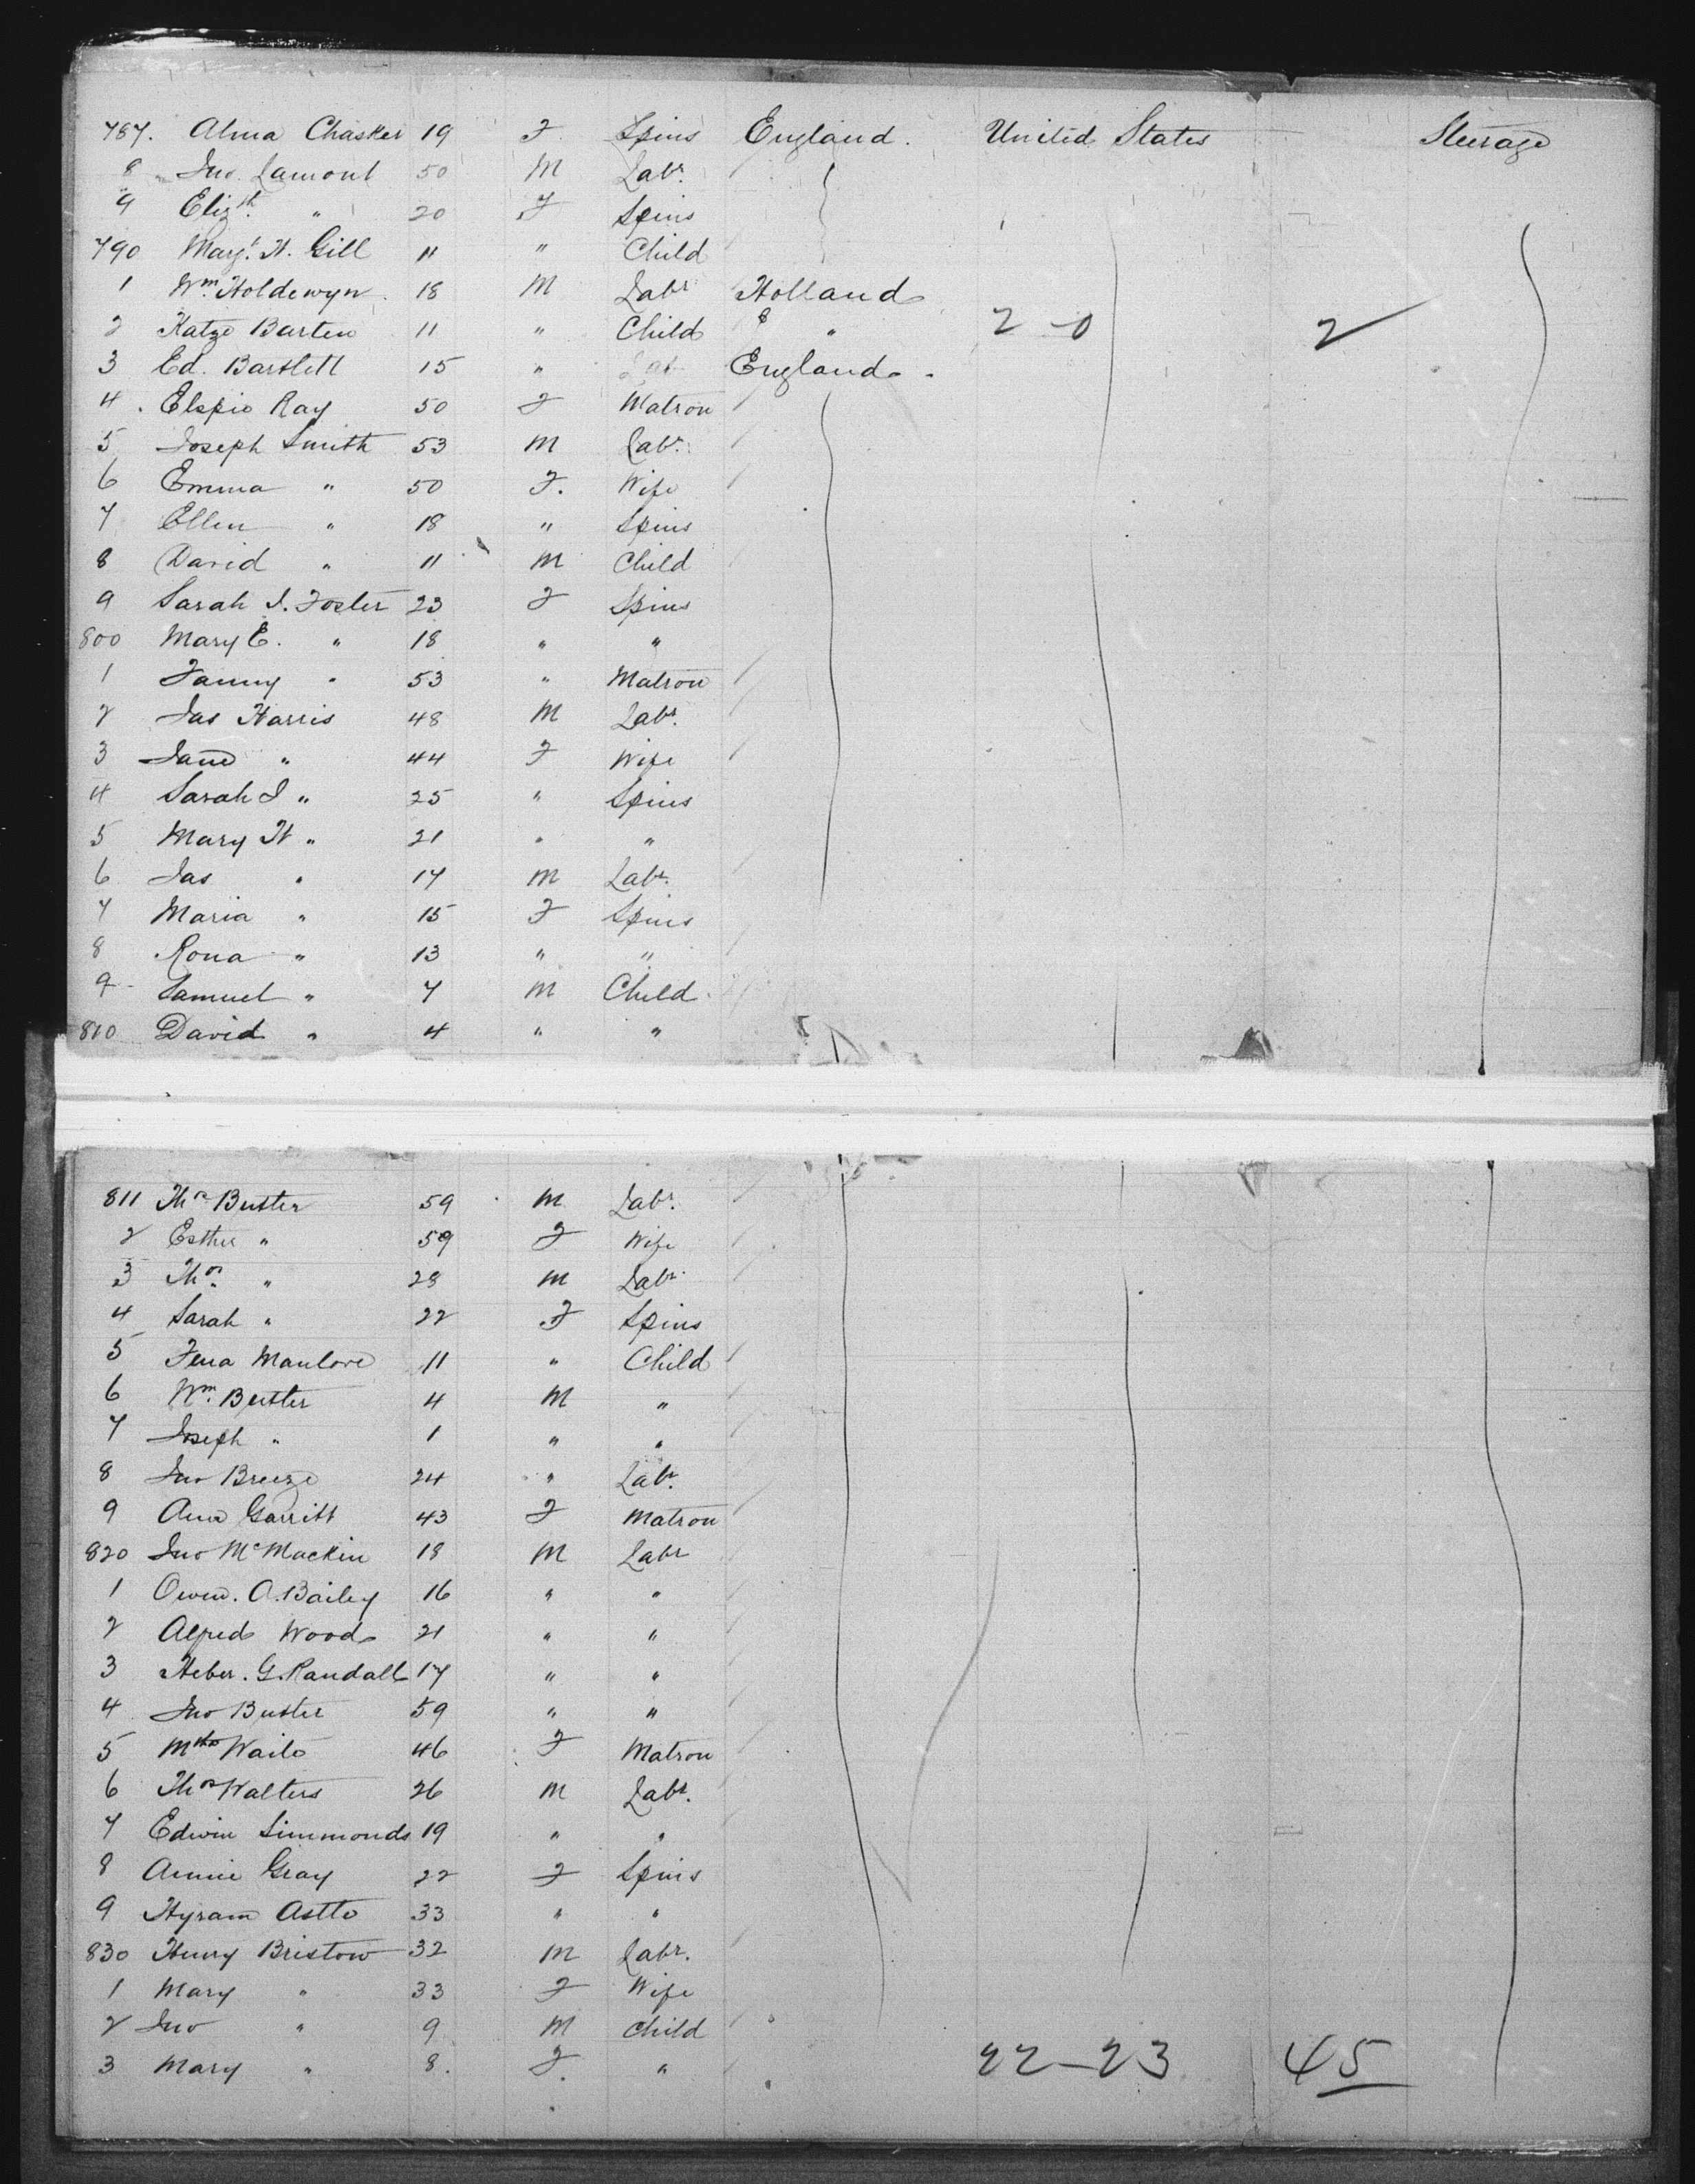 787. Alma Chasker 19 F Spins England. United States Steerage
8 Jno. Lamont 50 M Labr.
9 Elizth. " 20 F Spins
790 Margt. H. Gill 11 " Child
1 Wm. Holdewyn 18 M Labr Holland
2 Katze Barten 11 " Child " 2-0 2
3 Ed. Bartlett 15 " Lab England.
4 Elspie Ray 50 F Matron
5 Joseph Smith 53 M Labr.
6 Emma " 50 F. Wife
7 Ellen " 18 " Spins
8 David " 11 M Child
9 Sarah J. Foster 23 F Spins
800 Mary E. " 18 " "
1 Fanny " 53 " Matron
2 Jas Harris 48 M Labr.
3 Jane " 44 F Wife
4 Sarah J " 25 " Spins
5 Mary H " 21 " "
6 Jas " 17 M Labr.
7 Maria " 15 F Spins
8 Rona " 13 " "
9 Samuel " 7 M Child
810 David " 4 " "
811 Thos Butter 59 M Labr.
2 Esther " 59 F Wife
3 Thos. " 28 M Labr.
4 Sarah " 22 F Spins
5 Fena Manlove 11 " Child
6 Wm. Butter 4 M "
7 Joseph " 1 " "
8 Jno Breeze 24 " Labr.
9 Ann Garritt 43 F Matron
820 Jno McMackin 18 M Labr
1 Owen. A. Bailey 16 " "
2 Alfred Wood 21 " "
3 Heber. G. Randall 17 " "
4 Jno Butter 59 " "
5 Mtha Waite 46 F Matron
6 Thos Walters 26 M Labr.
7 Edwin Simmonds 19 " "
8 Annie Gray 22 F Spins
9 Hyram Astle 33 " "
830 Henry Bristow 32 M Labr.
1 Mary " 33 F Wife
2 Jno " 9 M Child
3 Mary " 8. F. " 22-23 45